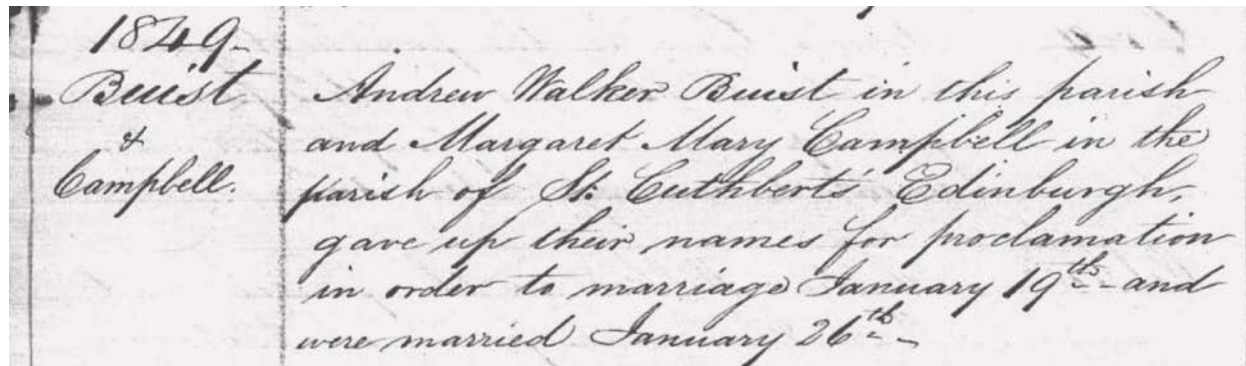 1849.
Buist
&
Campbell.
Andrew Walker Buist in this parish
and Margaret Mary Campbell in the
parish of St. Cuthbert's Edinburgh,
gave up their names for proclamation
in order to marriage January 19th and
were married January 26th